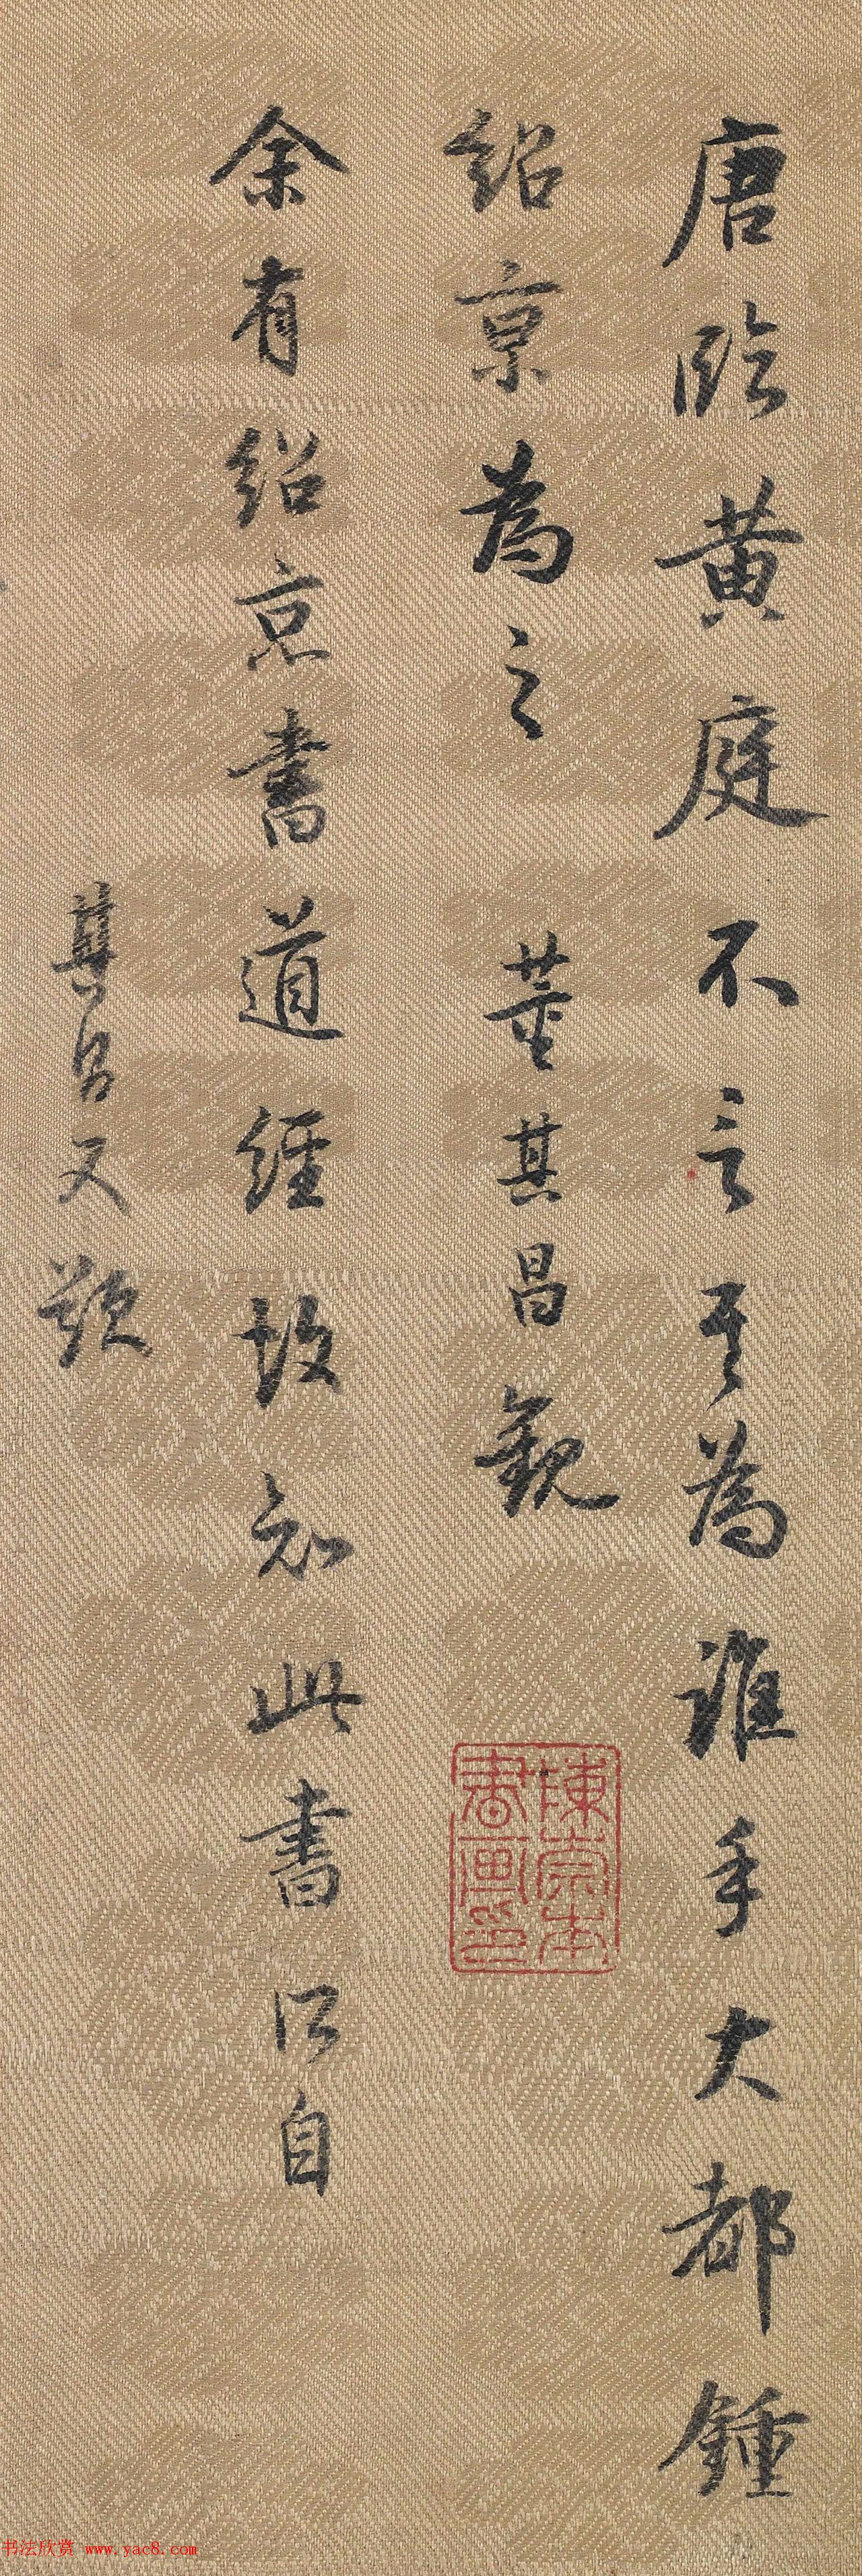 唐臨黄庭不言其為誰手大都鍾
紹京為之 董其昌觀
陳宗本書画印
余有紹京書道經故知此書所自
其昌又題
书法欣赏 www.yac8.com